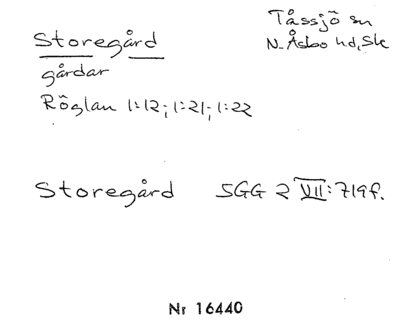 Tåssjö sn
N. Åsbo hd, Sk
Storegård
gårdar
Röglan 1:12; 1:21; 1:22
Storegård SGG 2 VII: 719f.
Nr 16440